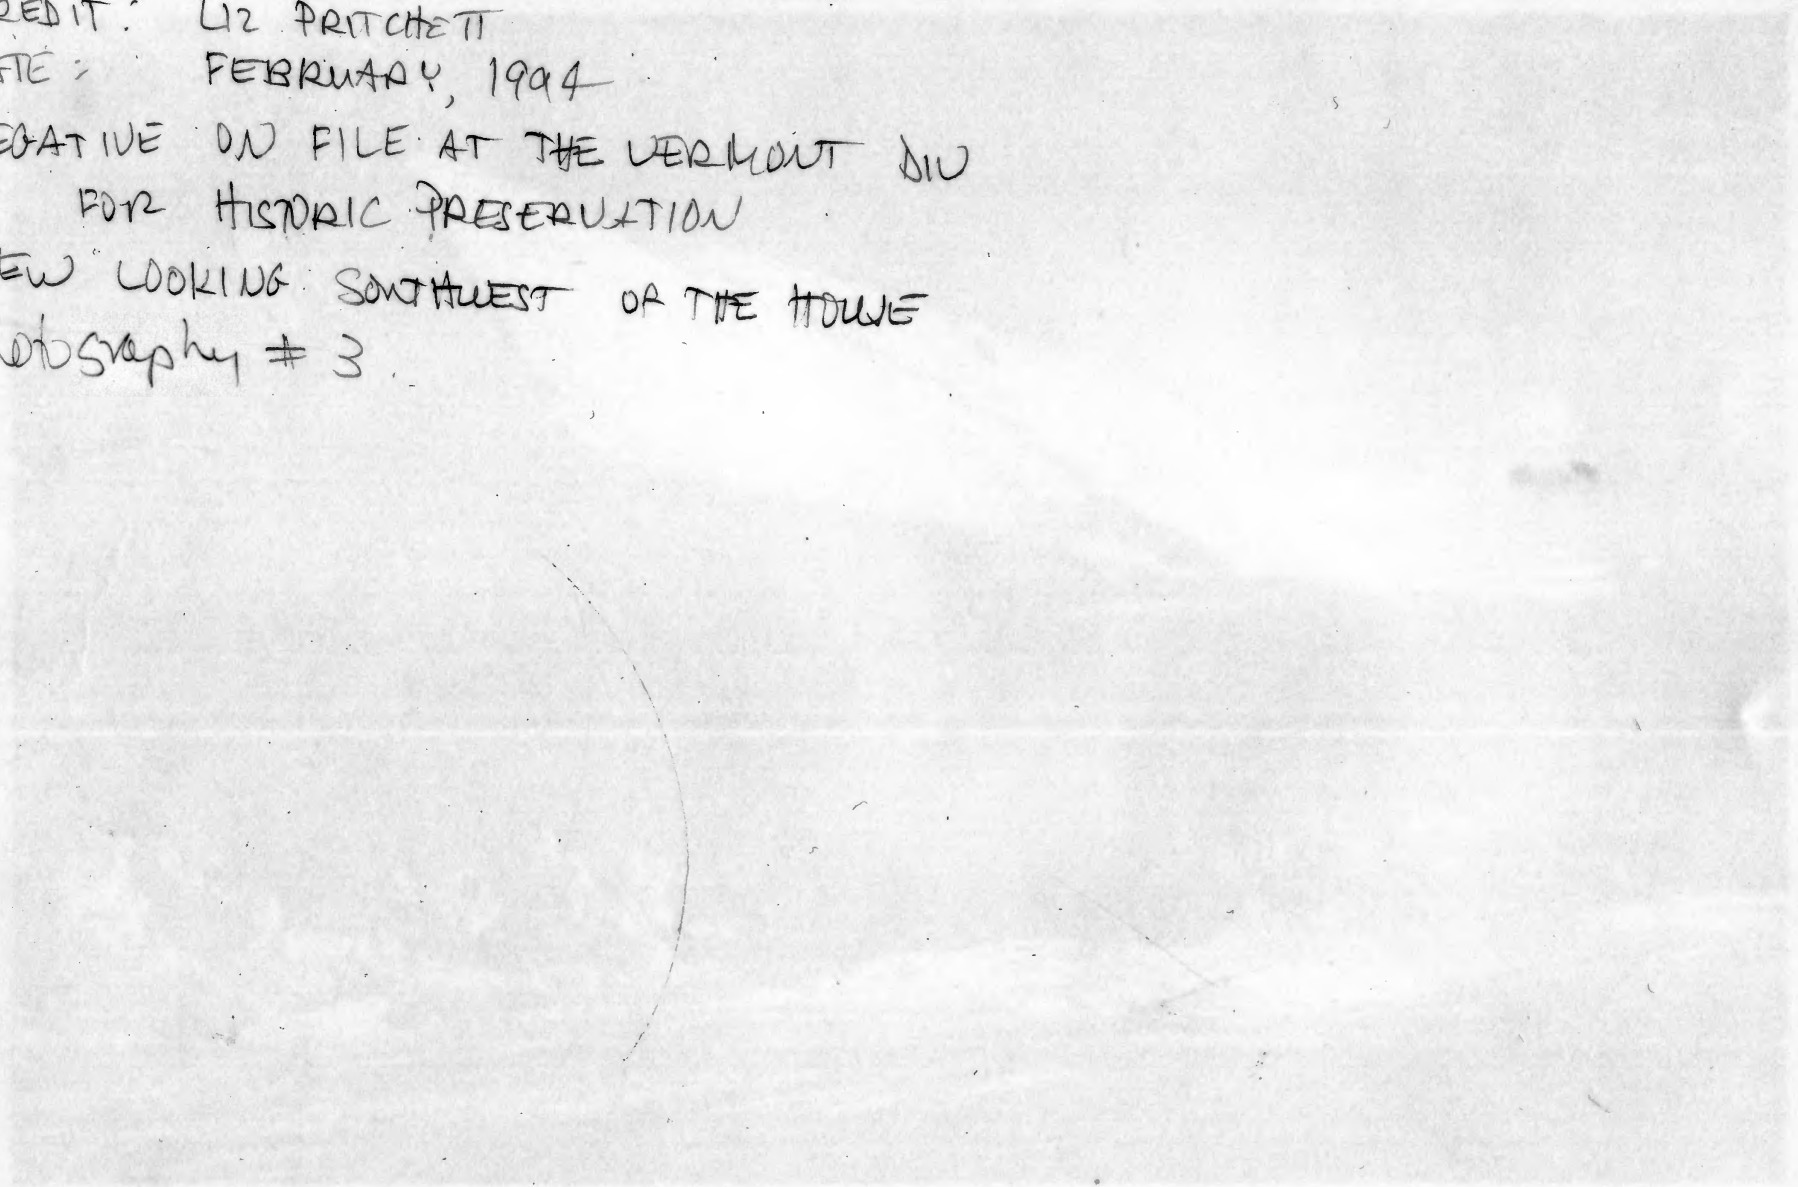 REDIT: LIZ PRITCHETT
ATE: FEBRUARY, 1994
EGATIVE ON FILE AT THE VERMONT DIV
FOR HISTORIC PRESERVATION
EW LOOKING SOUTHWEST OF THE HOUSE
otography # 3.